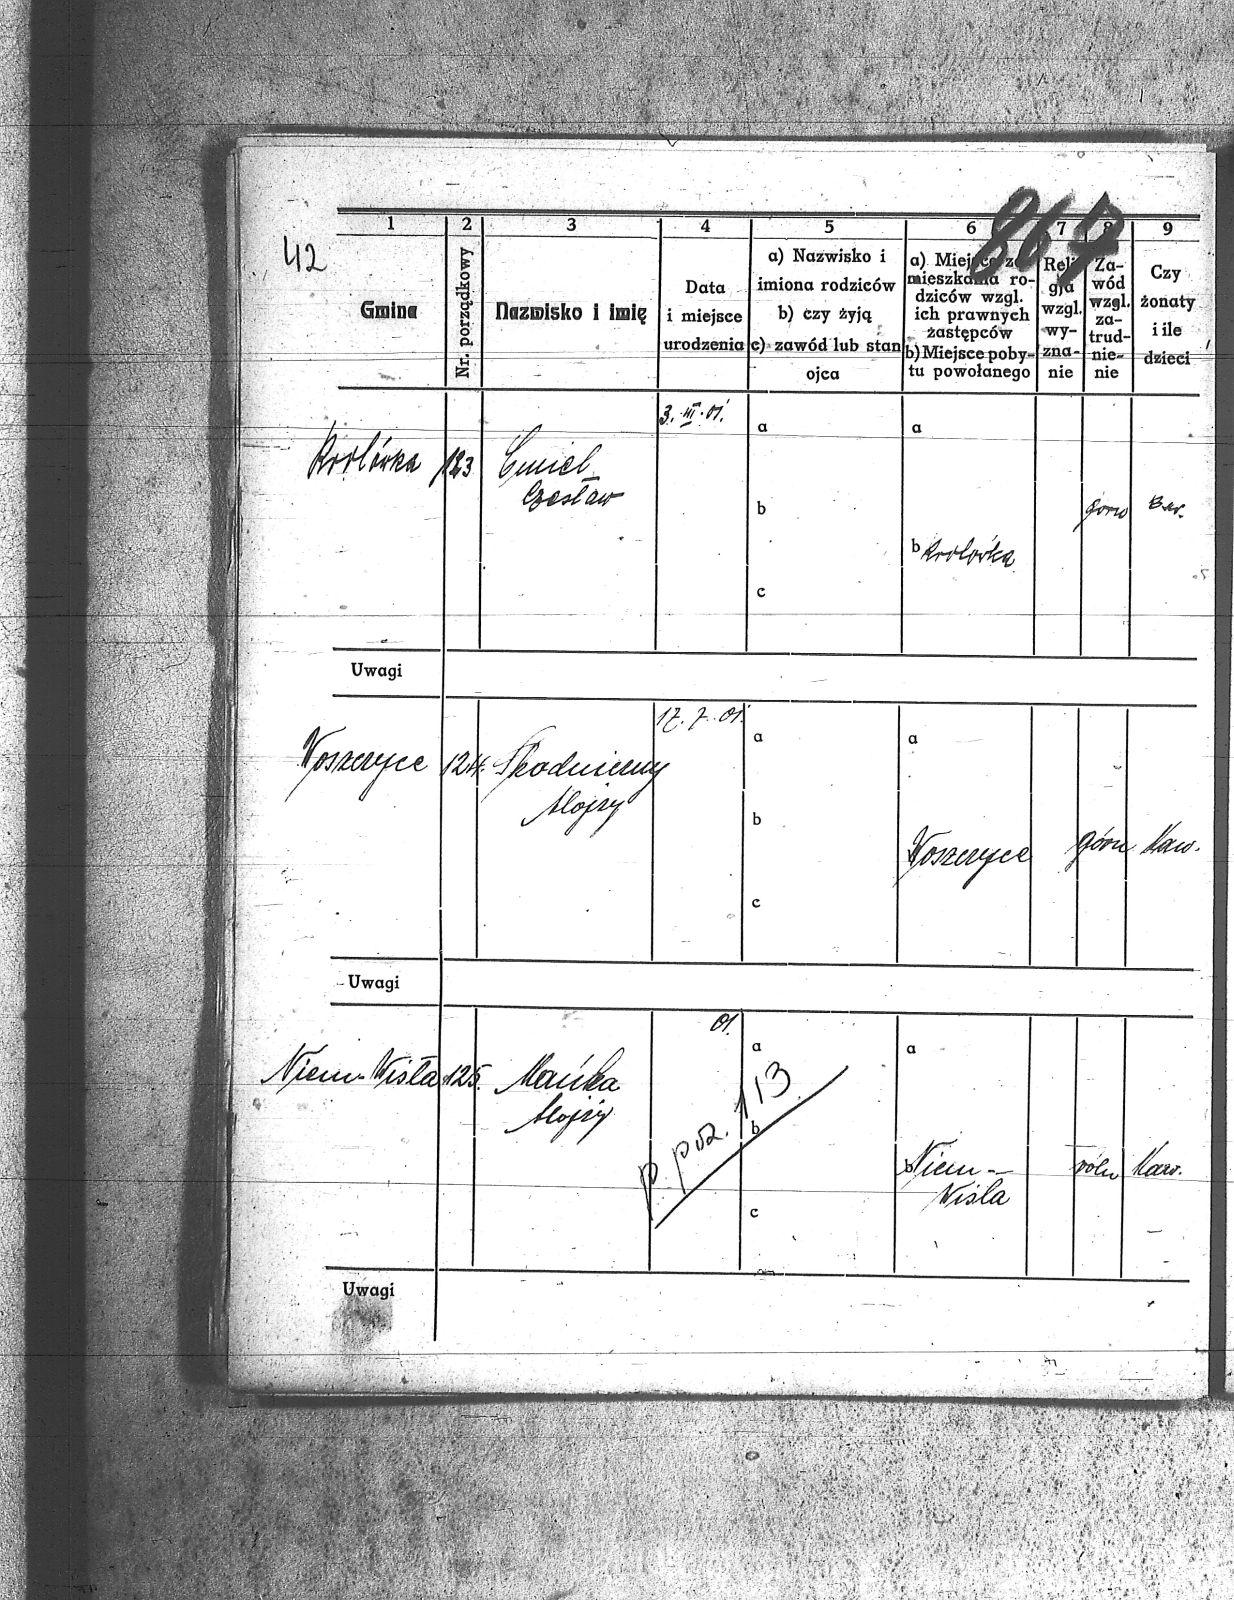 867
42
1 2 3 4 5 6 7 8 9
Gmina
Nr. porządkowy
Nazwisko i imię
Data
i miejsce
urodzenia
a) Nazwisko i
imiona rodziców
b) czy żyją
c) zawód lub stan
ojca
a) Miejsce za-
mieszkania ro-
dziców wzgl.
ich prawnych
zastępców
b) Miejsce poby-
tu powołanego
Reli-
gja
wzgl.
wy-
zna-
nie
Za-
wód
wzgl.
za-
trud-
nie-
nie
Czy
żonaty
i ile
dzieci
3. III. 01.
a a
Królówka 123 Cmiel
Czesław
b górn
b Królówka
c
Uwagi
17. 7. 01.
a a
Woszczyce 124.
Alojzy
b
Woszczyce górn Kaw.
c
Uwagi
01.
a a
Niem-Wisła 125. Mańka
Alojzy
p. poz. 113
b
b Niem- roln Kaw.
Wisla
c
Uwagi